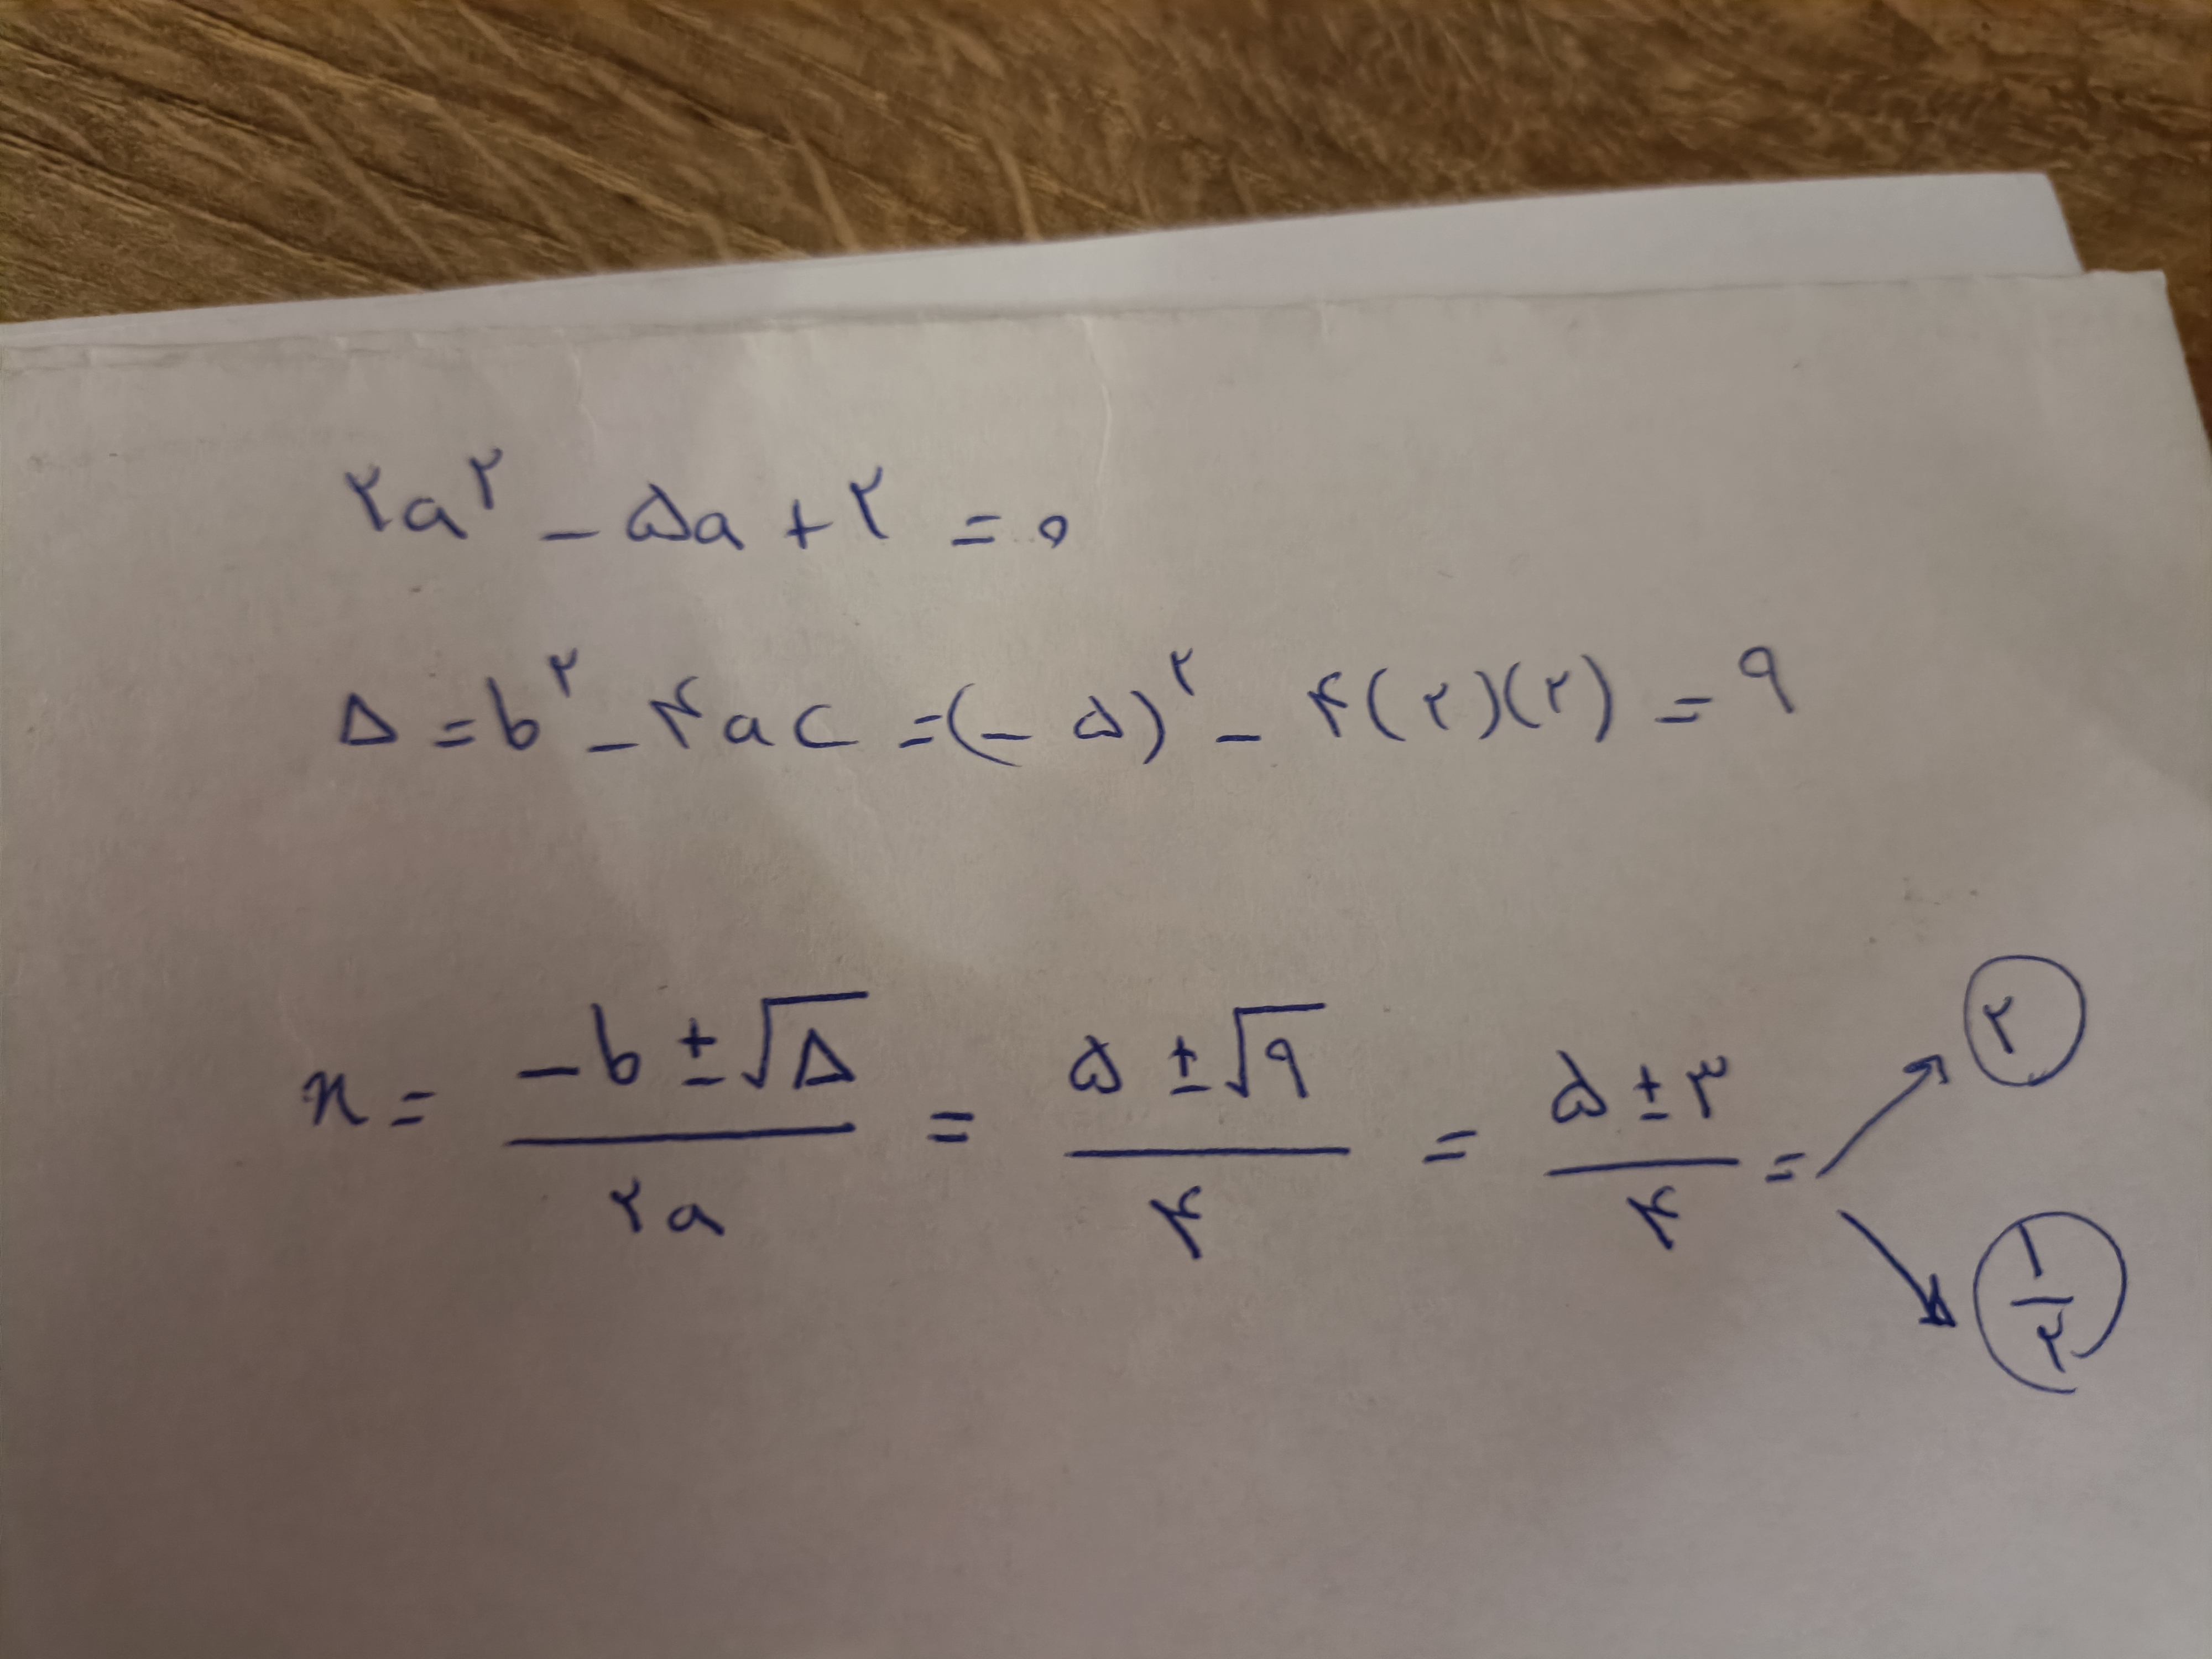 ۲a^۲ - ۵a + ۲ = ۰
Δ = b^۲ - ۴ac = (-۵)^۲ - ۴(۲)(۲) = ۹
x = (-b ± √Δ)/(۲a) = (۵ ± √۹)/۴ = (۵ ± ۳)/۴ = ↗ ۲ ↘ ۱/۲